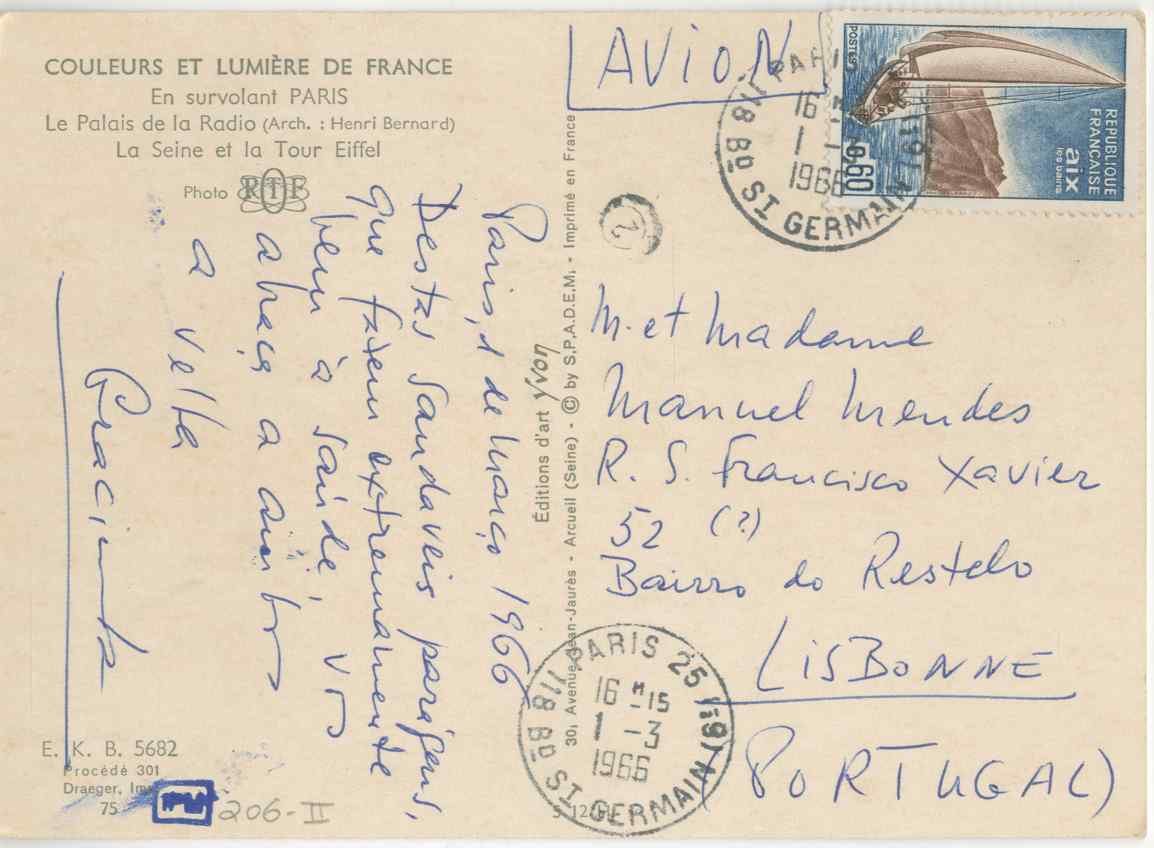 COULEURS ET LUMIÈRE DE FRANCE
En survolant PARIS
Le Palais de la Radio (Arch. : Henri Bernard)
La Seine et la Tour Eiffel
Photo RTF
Paris, 1 de Março 1966
Destas saudaveis paragens,
que fazem extremamente
bem à saúde, vos
abraça a ambos
a velha
Gracinda
E. K. B. 5682
Procédé 301
Draeger, Imp
75
206-II
Éditions d'art yvon
30, Avenue Jean-Jaurès - Arcueil (Seine) - © by S.P.A.D.E.M. - Imprimé en France
AVION
POSTES
0,60
REPUBLIQUE
FRANÇAISE
aix
les bains
PARIS
16
1
1966
118 BD ST GERMAIN
2
M. et Madame
Manuel Mendes
R. S. Francisco Xavier
52 (?)
Bairro do Restelo
LISBONNE
(PORTUGAL)
PARIS 25 (19)
16 H 15
1 - 3
1966
118 BD ST GERMAIN